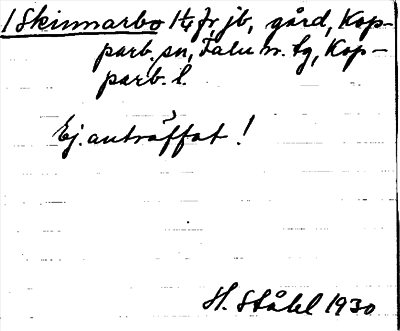 1 Skinnarbo 1/4 fr jb, gård, Kop-
parb. sn, Falu n. tg, Kop-
parb. l.
Ej. anträffat!
H. Ståhl 1930